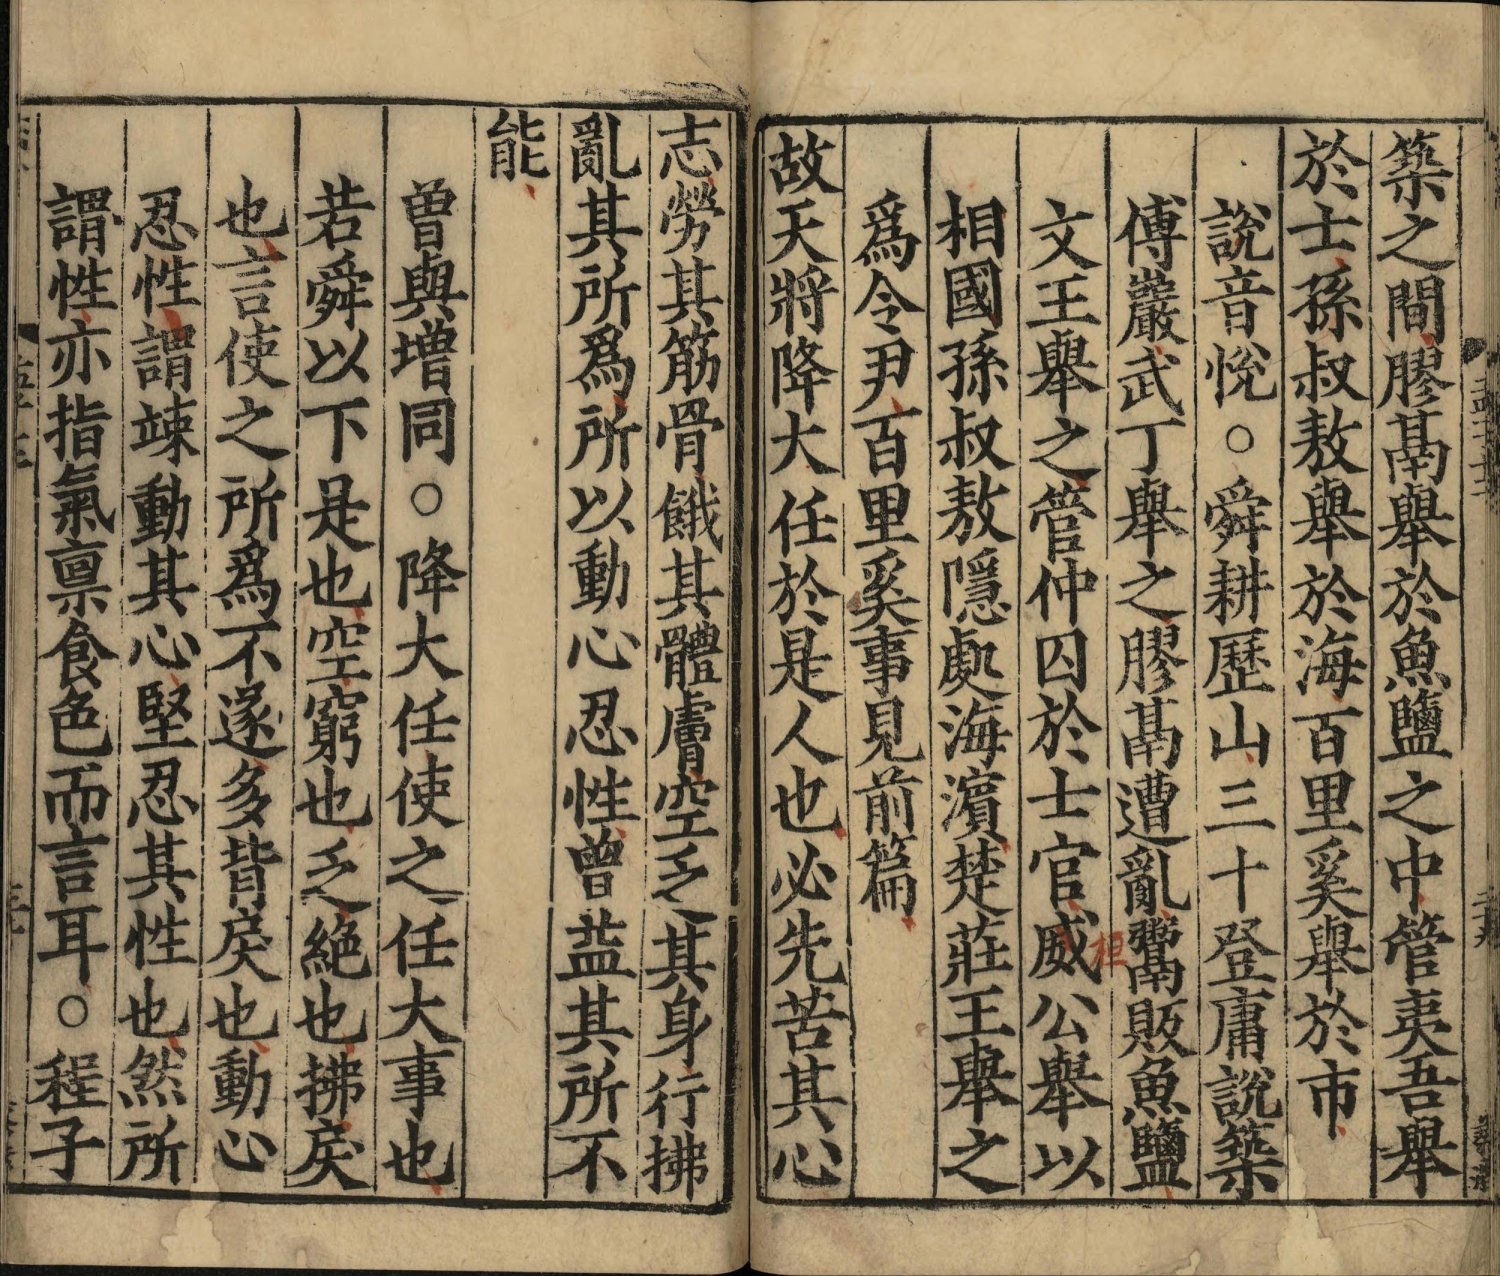 築之間膠鬲舉於魚鹽之中管夷吾舉
於士孫叔敖舉於海百里奚舉於市
說音悅○舜耕歷山三十登庸說築
傅巖武丁舉之膠鬲遭亂鬻販魚鹽
文王舉之管仲囚於士官威公舉以
桓
相國孫叔敖隱處海濱楚莊王舉之
爲令尹百里奚事見前篇
故天將降大任於是人也必先苦其心
志勞其筋骨餓其體膚空乏其身行拂
亂其所爲所以動心忍性曾益其所不
能
曾與增同○降大任使之任大事也
若舜以下是也空窮也乏絕也拂戾
也言使之所爲不遂多背戾也動心
忍性謂竦動其心堅忍其性也然所
謂性亦指氣禀食色而言耳○程子